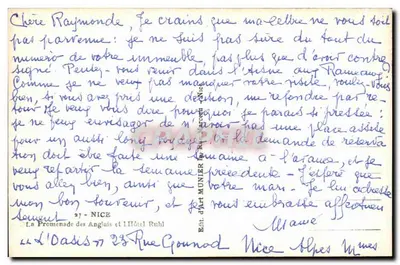 Chère Raymonde, Je crains que ma lettre ne vous soit
pas parvenue : je ne suis pas sûre du tout du
numéro de votre immeuble, pas plus que d'avoir contre
signé. Pensez-vous venir dans l'Aisne aux Rameaux ?
Comme je ne veux pas manquer votre visite, voulez-vous
bien, si vous avez pris une décision, me répondre par re-
tour. Je veux vous dire pourquoi je parais si pressée :
je ne peux envisager de n'avoir pas une place assise
pour un aussi long voyage et la demande de réserva
tion doit être faite une semaine à l'avance, et je
veux rester la semaine précédente. J'espère que
vous allez bien, ainsi que votre mari. Je lui adresse
mon bon souvenir, et je vous embrasse affectueu
sement.
27 - NICE
La Promenade des Anglais et l'Hôtel Ruhl
"L'Oasis" 23 Rue Gounod Nice Alpes Mmes
Edit. d'Art MUNIER